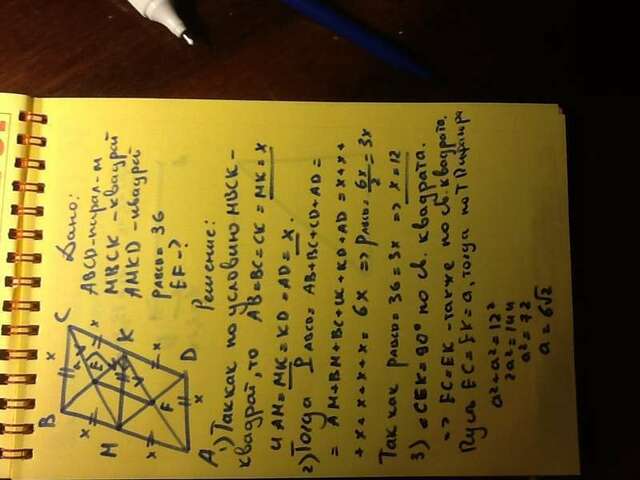 B x C
x x
M K
E
F
x x
A x D
Дано:
ABCD-парал-м
MBCK-квадрат
AMKD-квадрат
PABCD=36
EF-?
Решение:
1) Так как по условию MBCK-
квадрат, то AB=BC=CK=MK=x
и AM=MK=KD=AD=x.
2) Тогда PABCD=AB+BC+CD+AD=
=AM+BM+BC+CK+KD+AD=x+x+
+x+x+x+x=6x => PABCD=6x/2=3x
Так как PABCD=36=3x => x=12
3) ∠CEK=90° по св. квадрата.
=> EC=EK-также по св. квадрата.
Пусть EC=EK=a, тогда по Т Пифагора
a²+a²=12²
2a²=144
a²=72
a=6√2